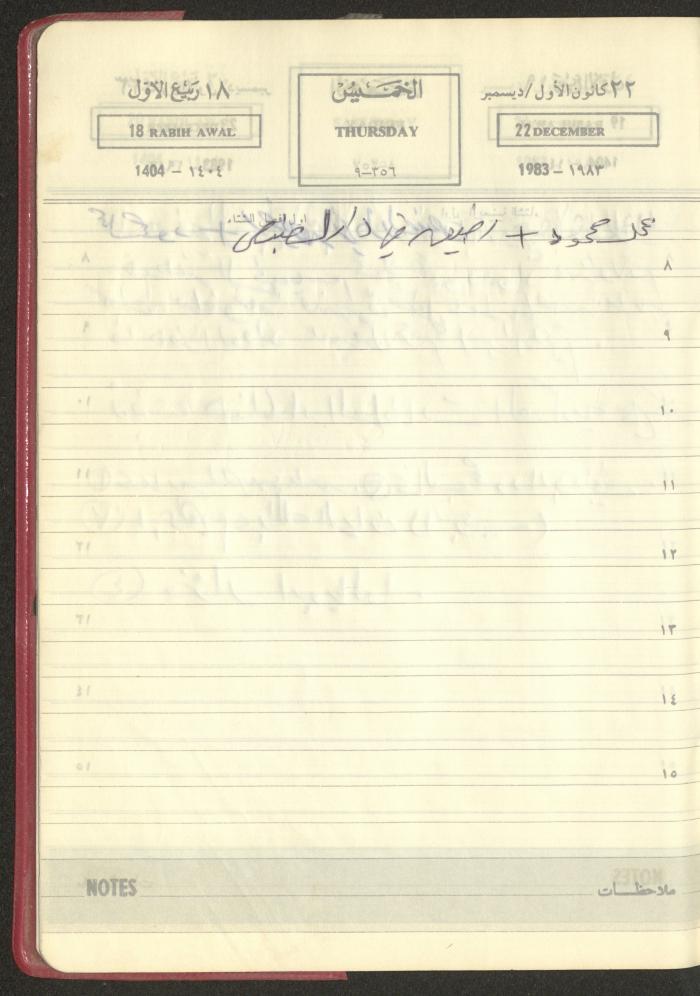 ٢٢ كانون الأول/ديسمبر الخميس ١٨ ربيع الأول
22 DECEMBER THURSDAY 18 RABIH AWAL
1983 – ١٩٨٣ ٩–٣٥٦ 1404 – ١٤٠٤
اول فصل الشتاء
محمد محمود + في دار
٨
٩
١٠
١١
١٢
١٣
١٤
١٥
NOTES ملاحظات